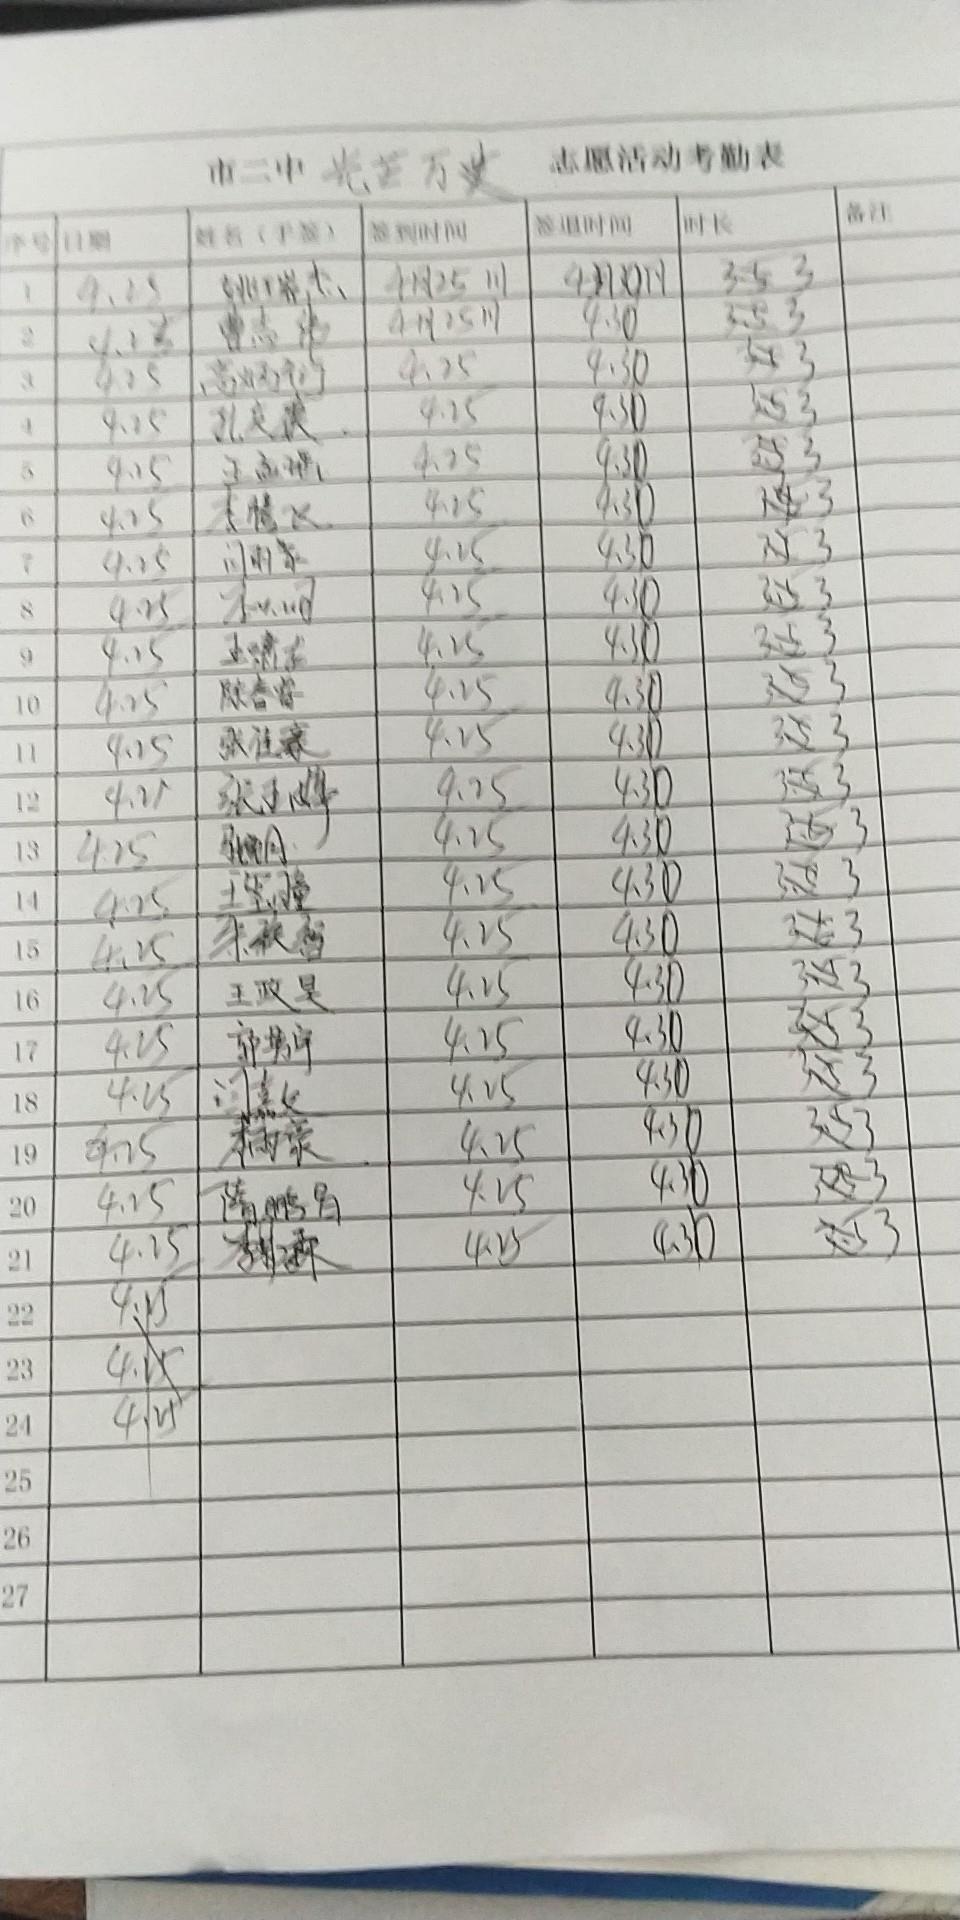 市二中 光芒万丈 志愿活动考勤表
序号 日期 姓名（手签） 签到时间 签退时间 时长 备注
1 4.25 4月25日 4月30日 3.5 3
2 4.25 曹志 4月25日 4.30 3.5 3
3 4.25 4.25 4.30 3.5 3
4 4.25 孔 4.25 4.30 3.5 3
5 4.25 王孟 4.25 4.30 3.5 3
6 4.25 李 4.25 4.30 3.5 3
7 4.25 闫雨 4.25 4.30 3.5 3
8 4.25 李 4.25 4.30 3.5 3
9 4.25 王 4.25 4.30 3.5 3
10 4.25 陈春 4.25 4.30 3.5 3
11 4.25 张佳豪 4.25 4.30 3.5 3
12 4.25 张 4.25 4.30 3.5 3
13 4.25 4.25 4.30 3.5 3
14 4.25 王 4.25 4.30 3.5 3
15 4.25 4.25 4.30 3.5 3
16 4.25 王政昊 4.25 4.30 3.5 3
17 4.25 郭 4.25 4.30 3.5 3
18 4.25 4.25 4.30 3.5 3
19 4.25 李雨 4.25 4.30 3.5 3
20 4.25 隋鹏 4.25 4.30 3.5 3
21 4.25 李 4.25 4.30 3.5 3
22 4.25
23 4.25
24 4.25
25
26
27